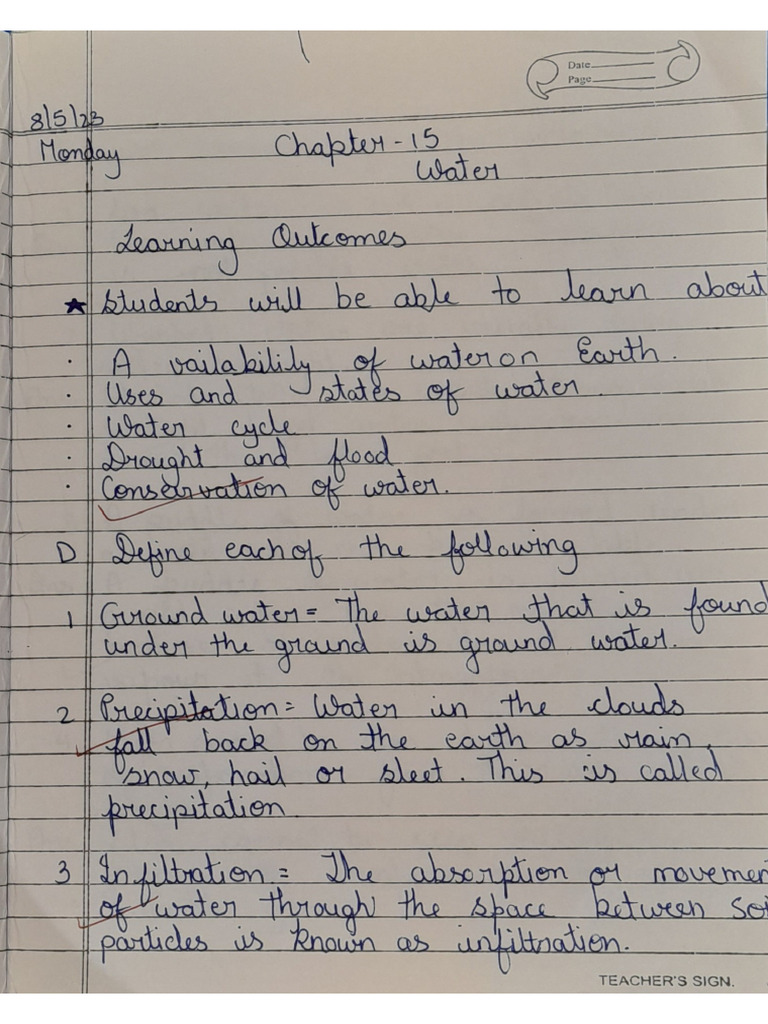 Date
Page
8/5/23
Monday
Chapter - 15
Water
Learning Outcomes
★ Students will be able to learn about
· A vailability of water on Earth.
· Uses and states of water
· Water cycle
· Drought and flood
· Conservation of water.
D Define each of the following
1 Ground water = The water that is found
under the ground is ground water.
2 Precipitation = Water in the clouds
fall back on the earth as rain,
snow, hail or sleet. This is called
precipitation.
3 Infiltration = The absorption or movemen
of water through the space between soi
particles is known as infiltration.
TEACHER'S SIGN.